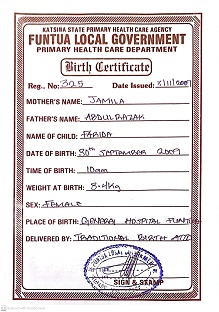 KATSINA STATE PRIMARY HEALTH CARE AGENCY
FUNTUA LOCAL GOVERNMENT
PRIMARY HEALTH CARE DEPARTMENT
Birth Certificate
Reg., No: 325 Date Issued:
MOTHER'S NAME: JAMILA
FATHER'S NAME: ABDULRAZAK
NAME OF CHILD: FARIDA
DATE OF BIRTH: 30th SEPTEMBER 2009
TIME OF BIRTH: 10am
WEIGHT AT BIRTH: 3.4kg
SEX: FEMALE
PLACE OF BIRTH: GENERAL HOSPITAL FUNTUA
DELIVERED BY: TRADITIONAL BIRTH
SIGN & STAMP